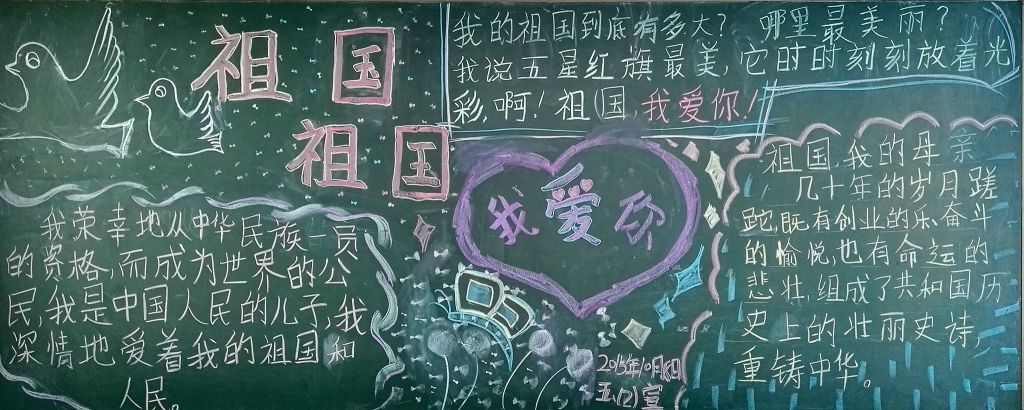 祖国
祖国
我的祖国到底有多大？哪里最美丽？
我说五星红旗最美,它时时刻刻放着光
彩,啊！祖国,我爱你！
我爱你
我荣幸地从中华民族一员
的资格,而成为世界的公
民,我是中国人民的儿子,我
深情地爱着我的祖国和
人民。
祖国,我的母亲
几十年的岁月蹉
跎,既有创业的乐,奋斗
的愉悦,也有命运的
悲壮,组成了共和国历
史上的壮丽史诗,
重铸中华。
2015年10月8日
五(2)宣